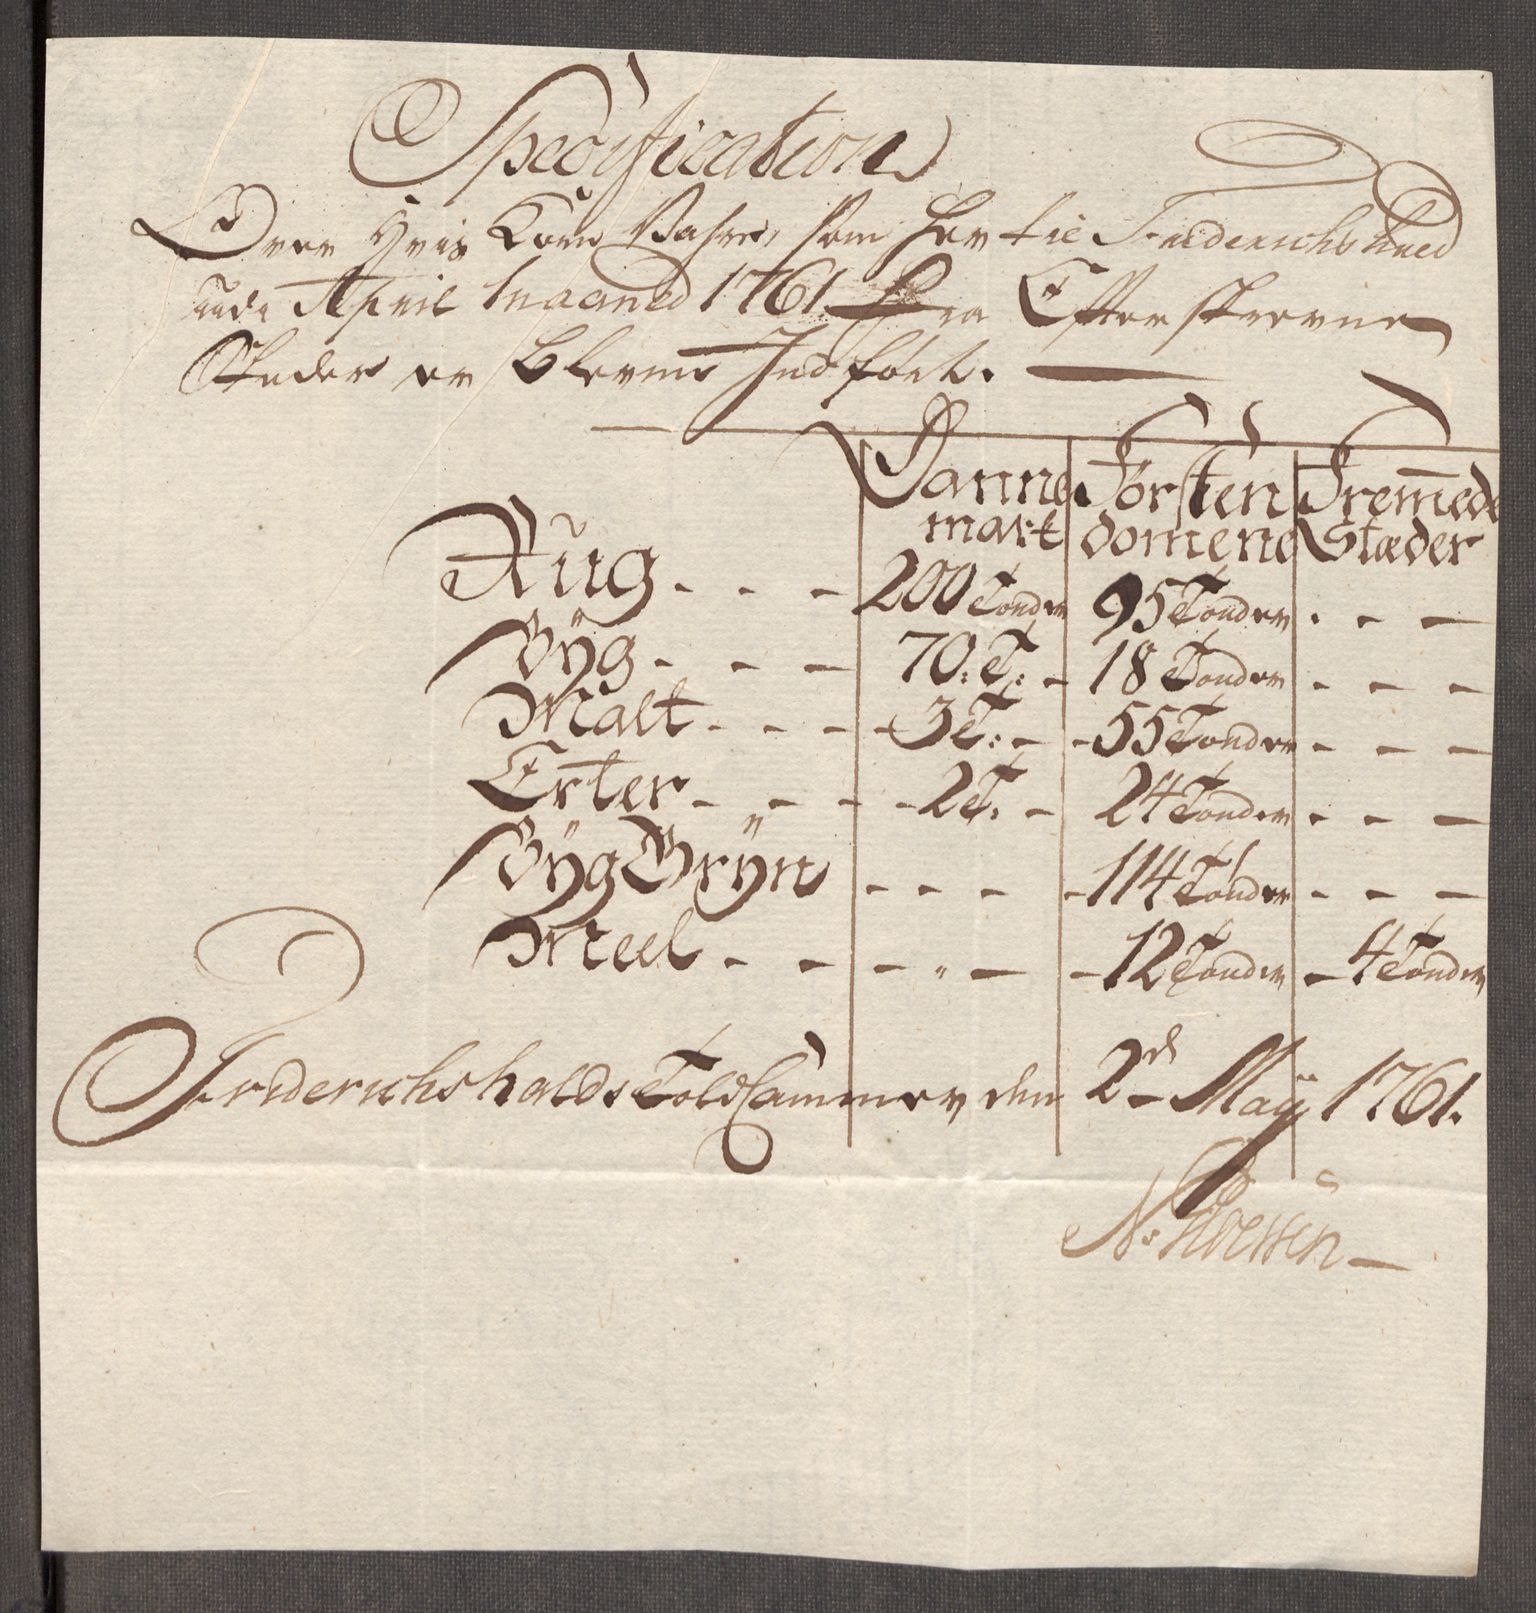 Specification
Over Hvis Korn Vahre, som her til Friderichshald
udi April Maaned 1761 Fra Efterskrevne
Stæder er blevne Indført.
Danne Førsten Fremede
mark domene Stæder
Rug - - - 200 Tønder 95 Tønder - - -
Byg - - - 70: T: - 18 Tønder - - -
Malt - - - - 3 T: - - 55 Tønder - - -
Erter - - - - 2 T: - 24 Tønder - - -
Byg Gryn - - - - 114 Tønder - - -
Meel - - - - - 12 Tønder - 4 Tønder
Friderichshalds Told Cammer den 2d May 1761.